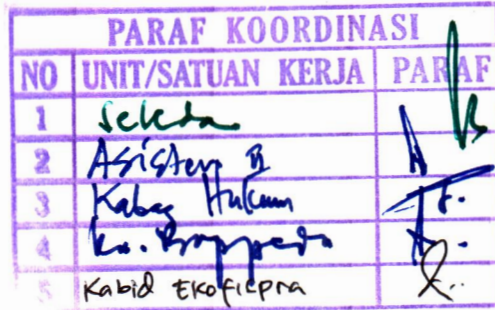 PARAF KOORDINASI
NO UNIT/SATUAN KERJA PARAF
1 Sekda
2 Asisten II
3 Kabag Hukum
4 Ka. Bappeda
5 Kabid Ekofispra